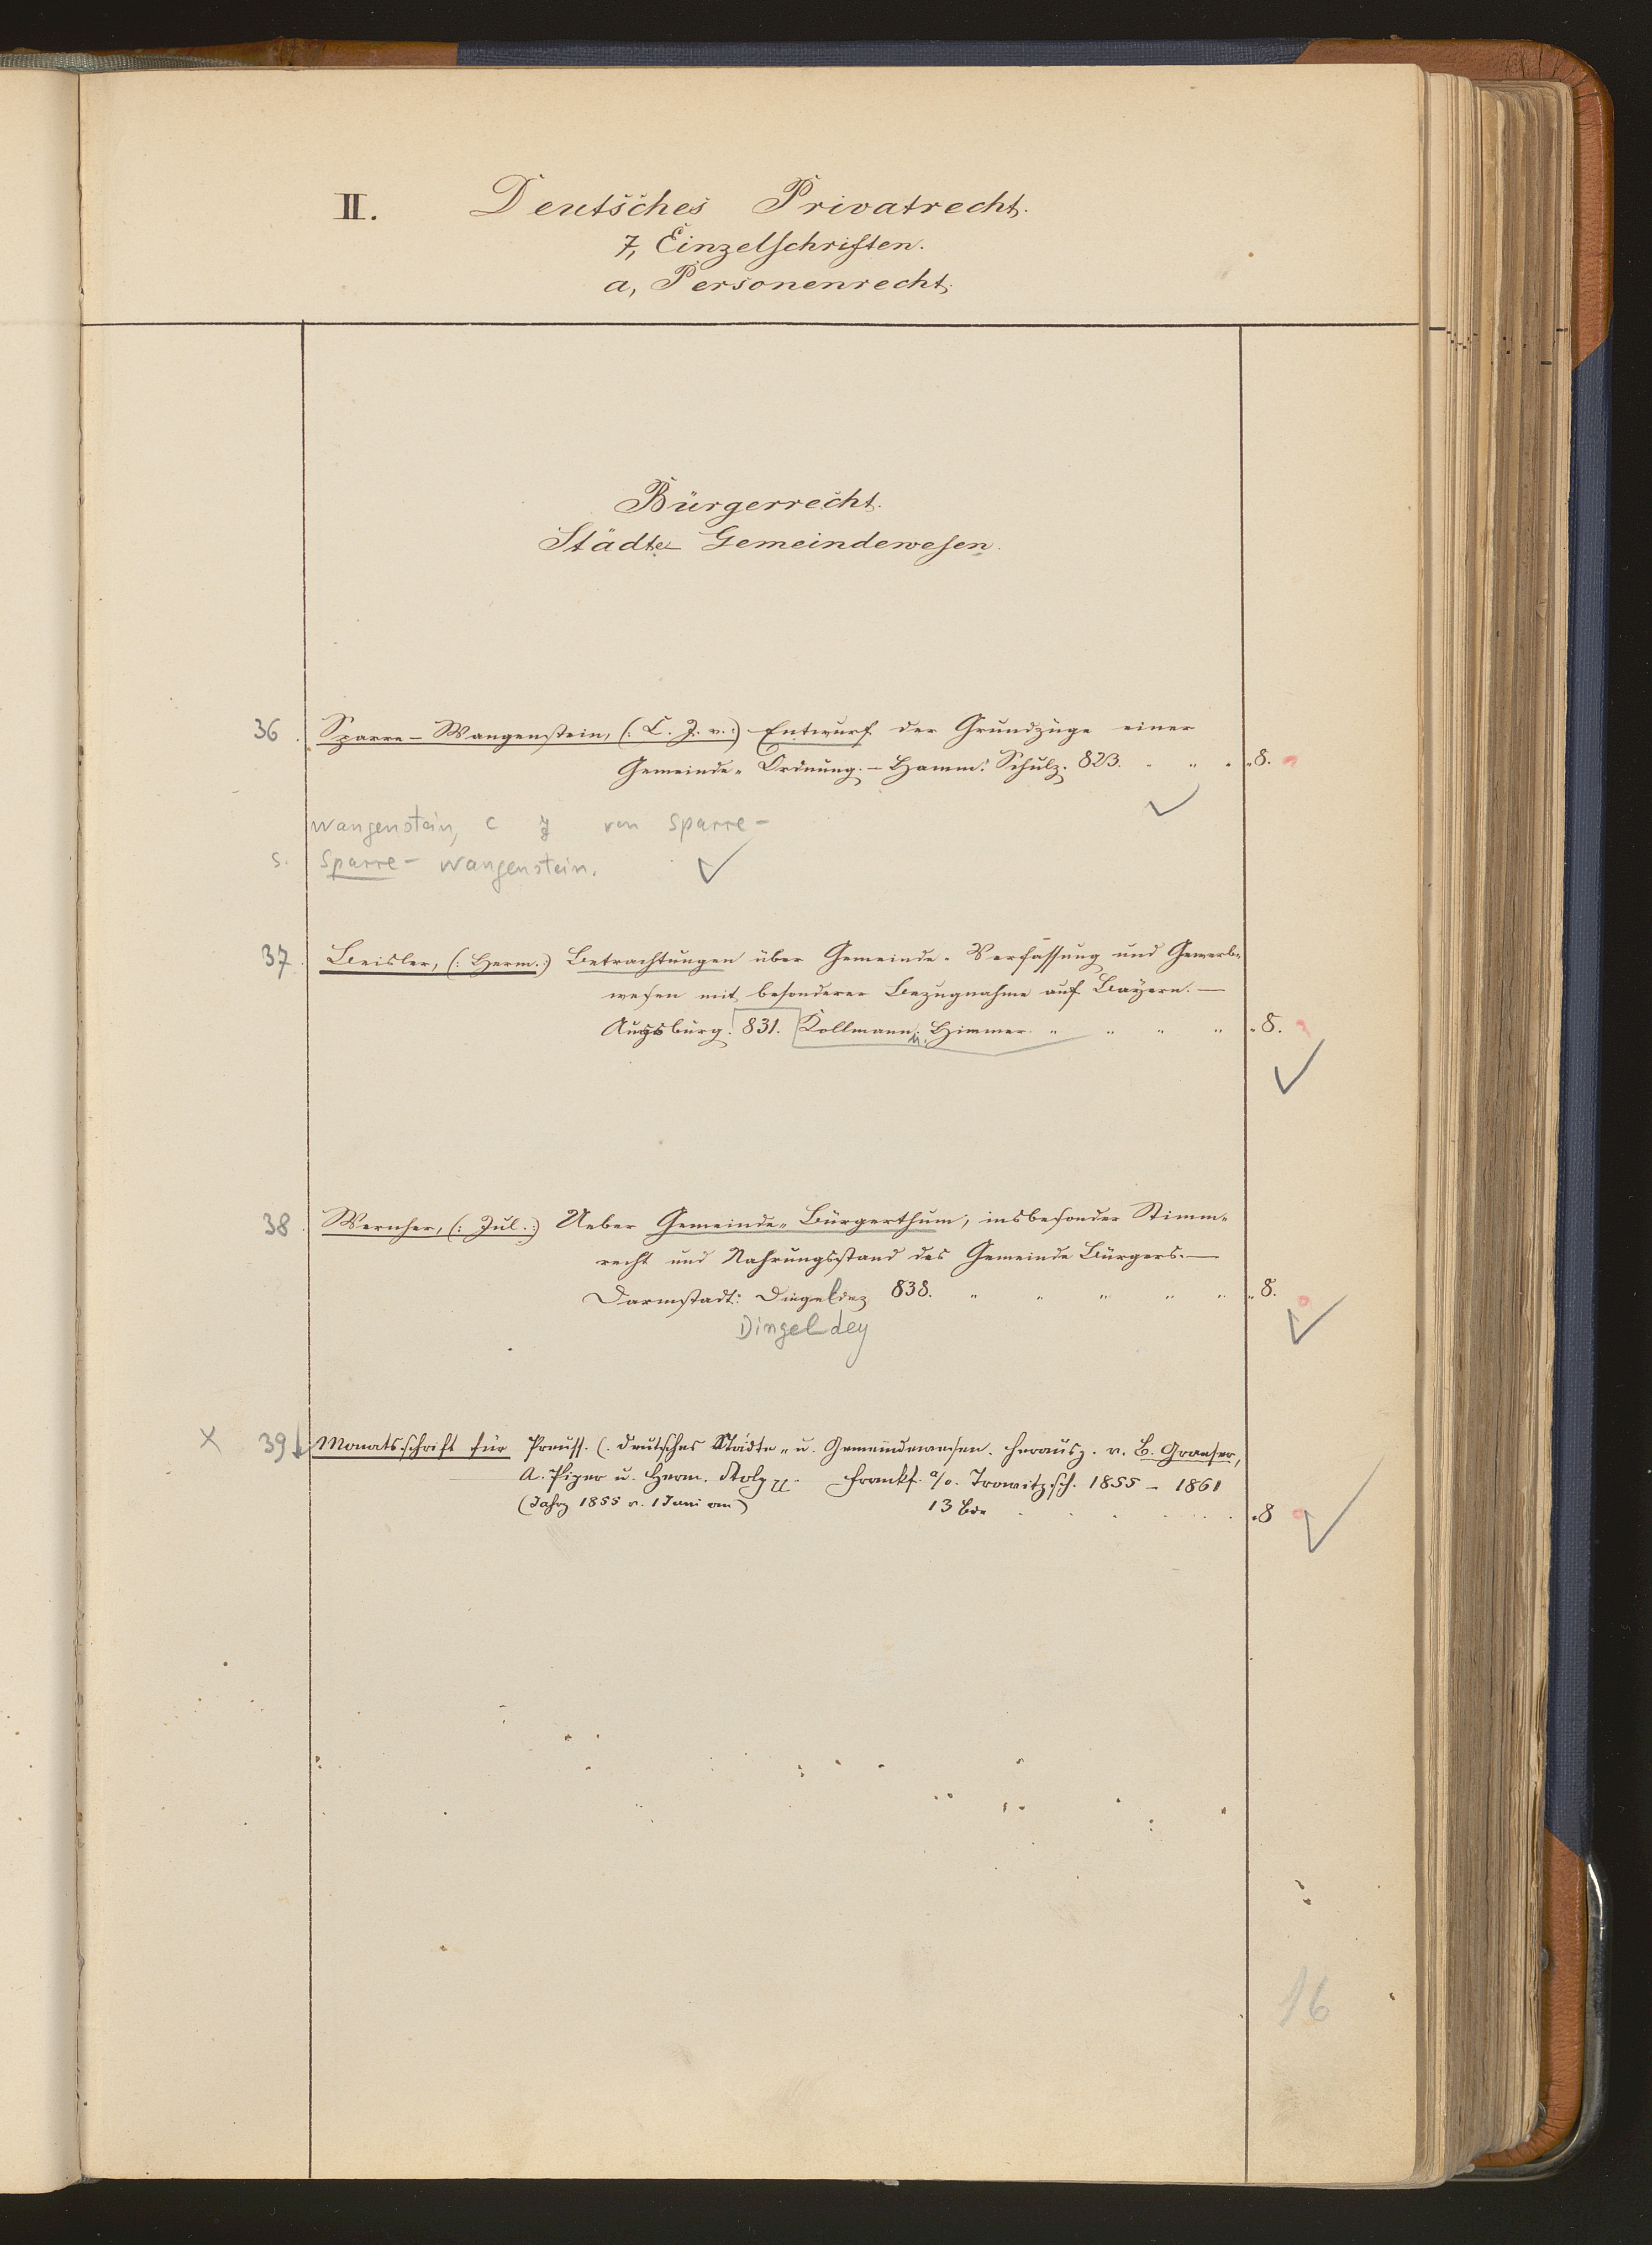 II. Deutsches Privatrecht.
7, Einzelschriften.
a, Personenrecht.
Bürgerrecht.
Städte Gemeindewesen.
36 Sparre-Wangenstein, (: C. J. v. :) Entwurf der Grundzüge einer
Gemeinde-Ordnung. – Hamm: Schulz. 823. 8.
Wangenstein, C J von Sparre-
s. Sparre-Wangenstein.
37 Beisler, (: Herm. :) Betrachtungen über Gemeinde-Verfassung und Gewerb-
wesen mit besonderer Bezugnahme auf Bayern. –
Augsburg. 831. Kollmann u. Himmer. 8.
38 Wernher, (: Jul. :) Ueber Gemeinde-Bürgerthum, insbesonder Stimm-
recht und Nahrungsstand des Gemeinde Bürgers. –
Darmstadt: Dingeldey 838. 8.
Dingeldey
x 39 Monatsschrift für Preuss. (. deutsches Städte- u. Gemeindewesen. Herausg. v. B. Graeser,
A. Piper u. Herm. Stolp Frankf. a/o. Trowitzsch. 1855 – 1861
(Jahrg 1855 v. 1 Juni an) 13 Bde 8
16